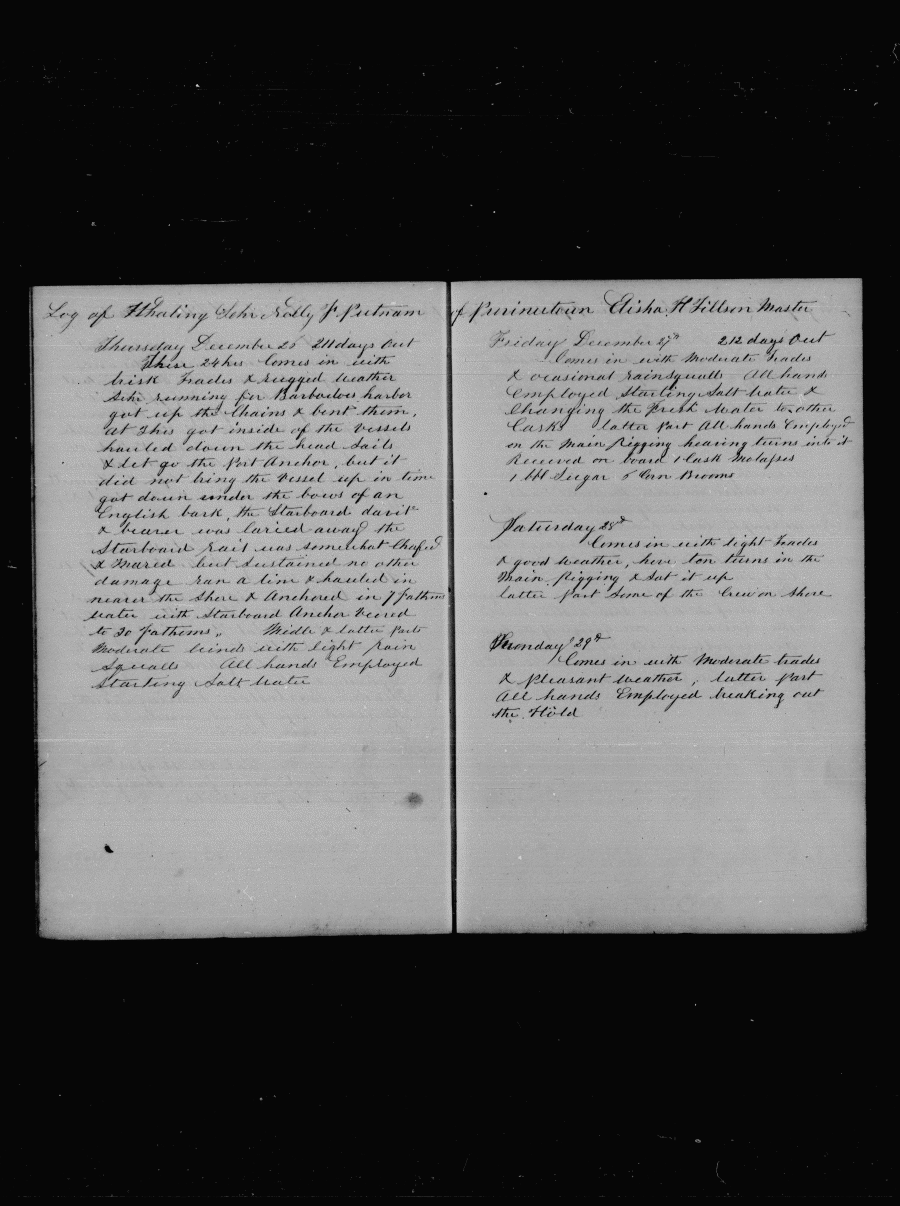 Log of Whaling Schr Nelly S. Putnam
Thursday December 26 211 days Out
These 24 hrs Comes in with
brisk Trades & rugged weather
Schr running for Barbadoes harbor
got up the Chains & bent them,
at This got inside of the vessels
hauled down the head Sails
& let go the Port Anchor, but it
did not bring the vessel up in time
got down under the bows of an
English bark, the Starboard davit
& bearer was caried away the
Starboard rail was somewhat Chafed
& Mared but Sustained no other
damage ran a line & hauled in
nearer the Shore & Anchored in 7 fathoms
water with Starboard Anchor veered
to 30 fathoms,, Midle & latter Parts
Moderate winds with light rain
Squalls All hands Employed
Starting Salt water
of Provincetown Elisha H Tillson Master
Friday December 27th 212 days Out
Comes in with Moderate trades
& ocasional rainsqualls All hands
Employed Starting Salt water &
Changing the Fresh water to other
Casks latter Part All hands Employed
on the Main Rigging heaving turns into it
Received on board 1 Cask Molasses
1 bbl Sugar 6 Corn Brooms
Saturday 28th
Comes in with light trades
& good weather, hove ton turns in the
Main Rigging & Sat it up
latter Part Some of the Crew on Shore
Sunday 29th
Comes in with Moderate trades
& Pleasant weather, latter Part
All hands Employed breaking out
the Hold